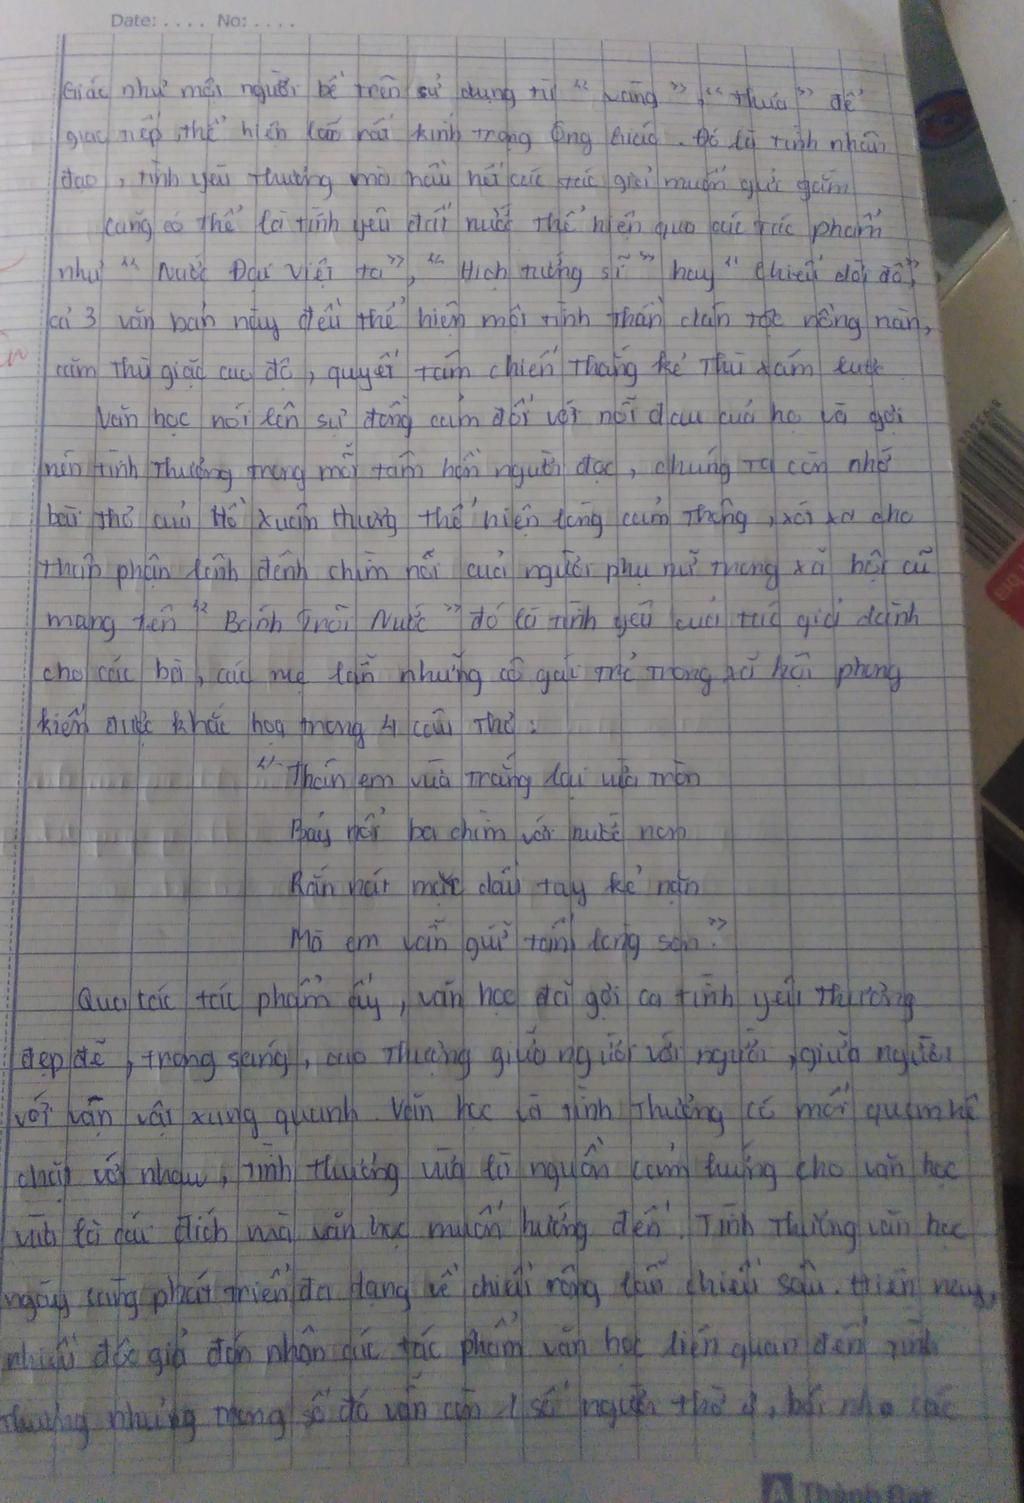 Date: .... No: ....
Giác như một người bề trên sử dụng từ "vâng", "thưa" để
giao tiếp, thể hiện lão rất kính trọng ông Giáo. Đó là tình nhân
đạo, tình yêu thương mà hầu hết các tác giả muốn gửi gắm
cũng có thể là tình yêu đất nước thể hiện qua các tác phẩm
như "Nước Đại Việt ta", "Hịch tướng sĩ" hay "Chiếu dời đô",
cả 3 văn bản này đều thể hiện một tinh thần dân tộc nồng nàn,
căm thù giặc cao độ, quyết tâm chiến thắng kẻ thù xâm lược
Văn học nói lên sự đồng cảm đối với nỗi đau của họ và gợi
nên tình thương trong mỗi tâm hồn người đọc, chúng ta còn nhớ
bài thơ của Hồ Xuân Hương thể hiện lòng cảm thông, xót xa cho
thân phận lênh đênh chìm nổi của người phụ nữ trong xã hội cũ
mang tên "Bánh Trôi Nước" đó là tình yêu của tác giả dành
cho các bà, các mẹ lẫn những cô gái trẻ trong xã hội phong
kiến được khắc họa trong 4 câu thơ:
"Thân em vừa trắng lại vừa tròn
Bảy nổi ba chìm với nước non
Rắn nát mặc dầu tay kẻ nặn
Mà em vẫn giữ tấm lòng son."
Qua các tác phẩm ấy, văn học đã gợi ca tình yêu thương
đẹp đẽ, trong sáng, cao thượng giữa người với người, giữa người
với vạn vật xung quanh. Văn học và tình thương có mối quan hệ
chặt với nhau, tình thương vừa là nguồn cảm hứng cho văn học
vừa là cái đích mà văn học muốn hướng đến. Tình thương văn học
ngày càng phát triển đa dạng về chiều rộng lẫn chiều sâu. Hiện nay,
nhiều độc giả đón nhận các tác phẩm văn học liên quan đến tình
thương nhưng trong số đó vẫn còn 1 số người thờ ơ, bỏi nhọ các
Thành Đạt